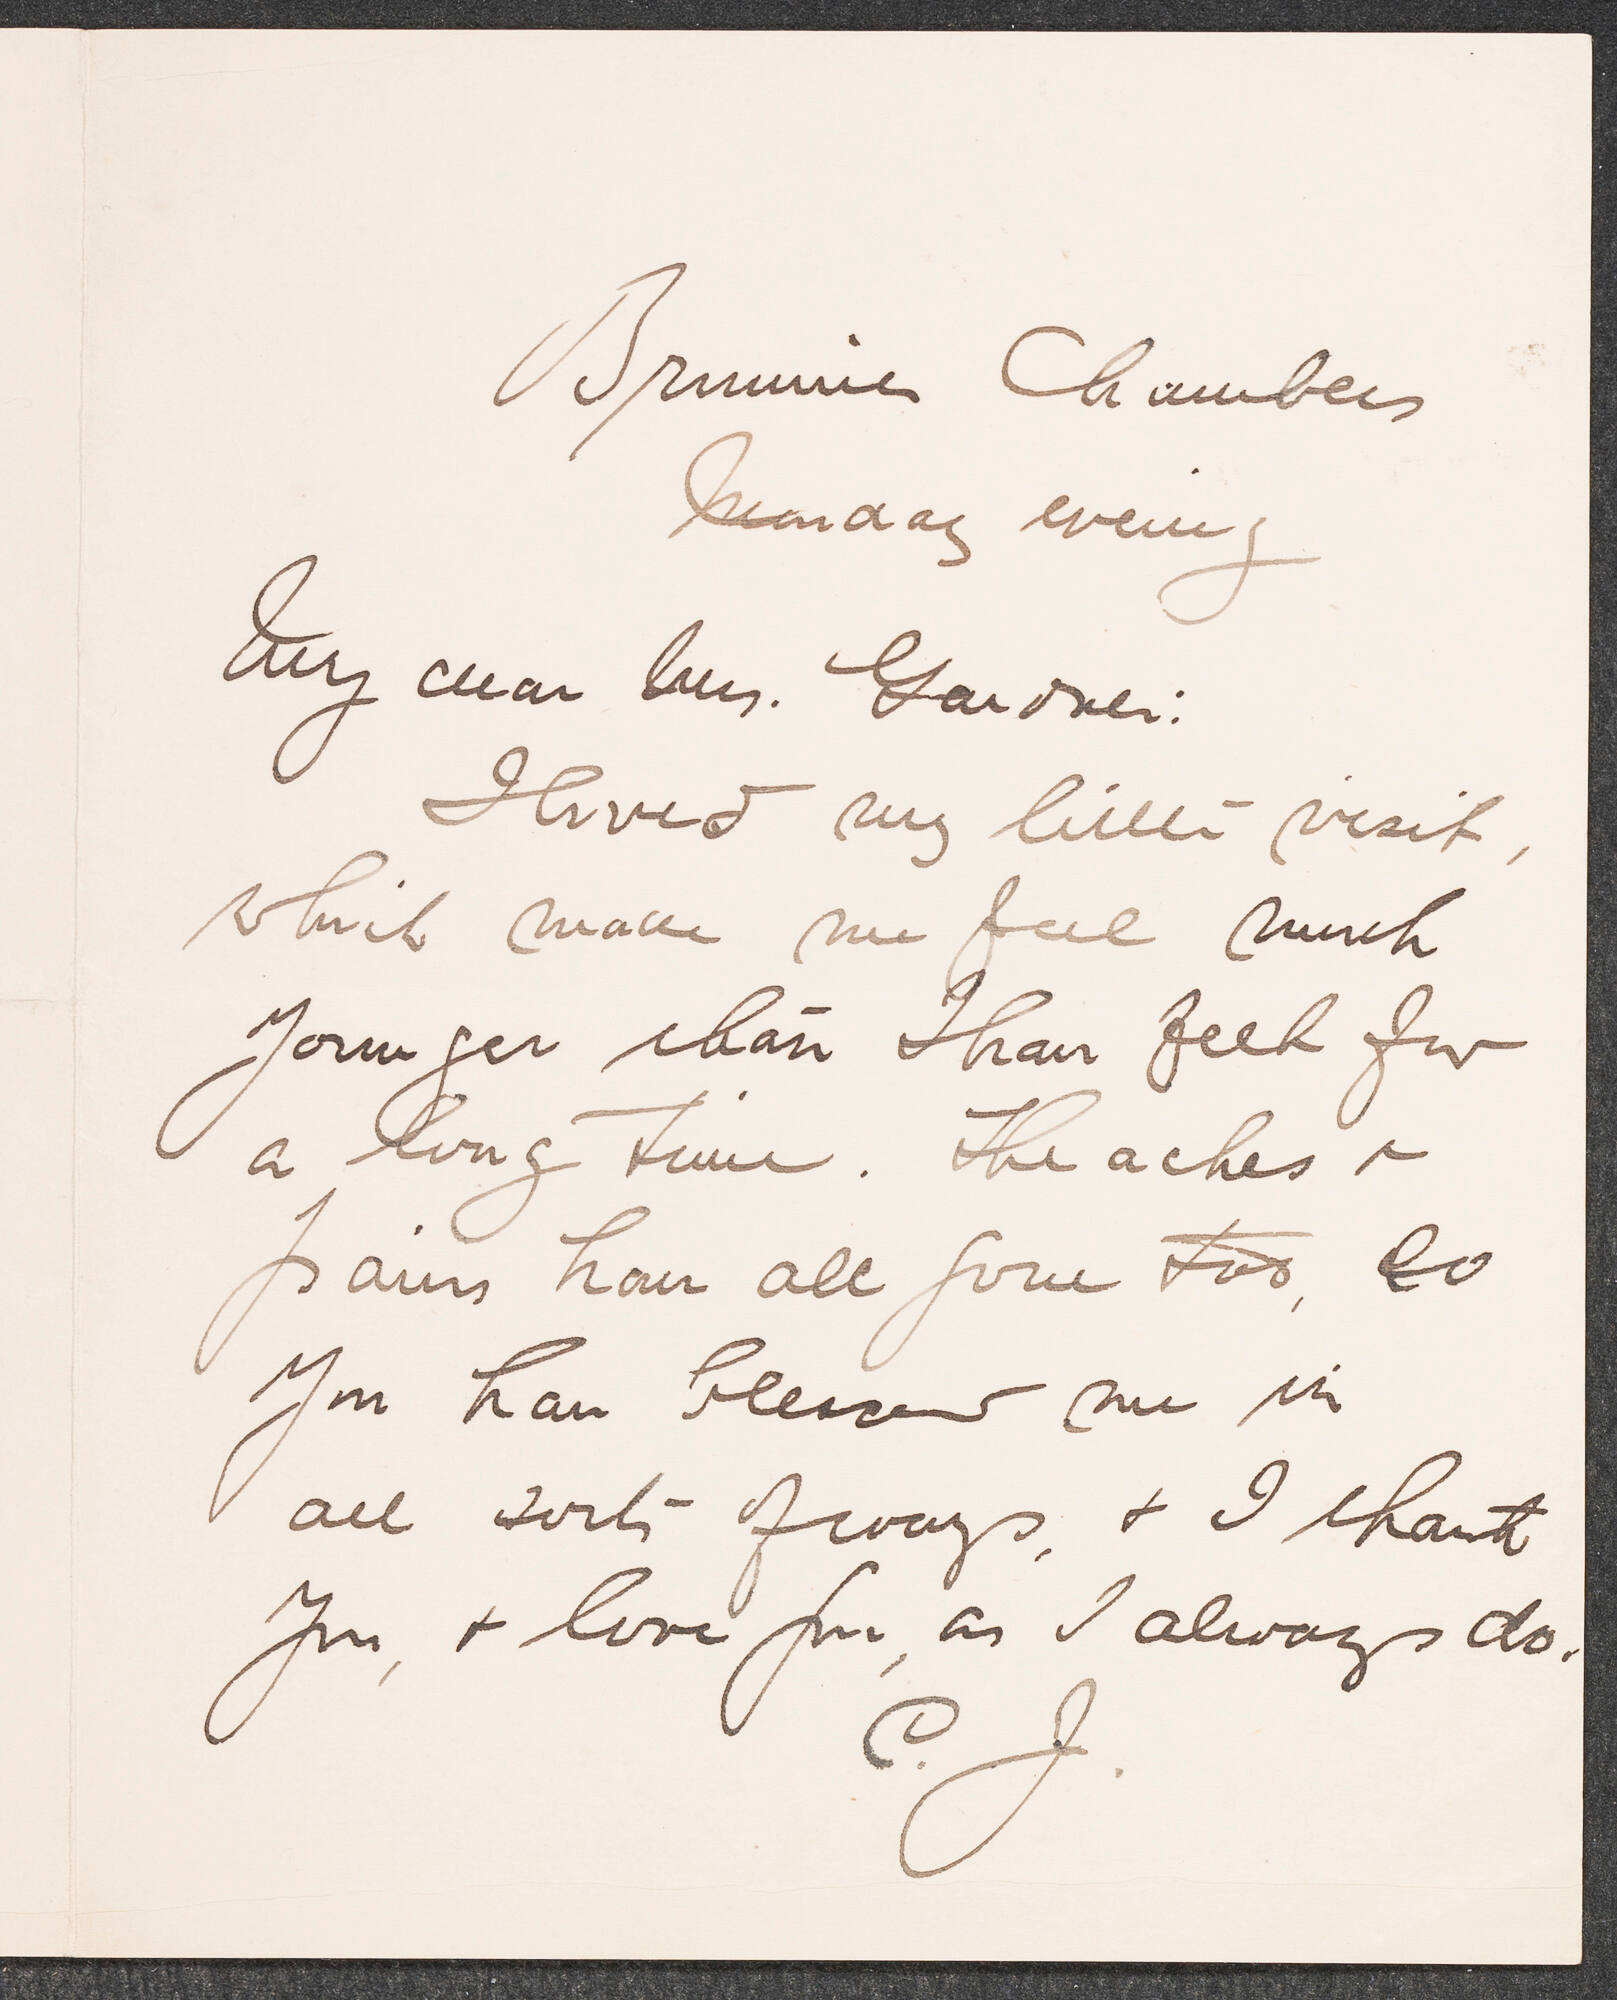 Brimmer Chambers
Monday evening
My dear Mrs. Gardner:
I loved my little visit,
which made me feel much
younger than I have felt for
a long time. The aches &
pains have all gone too, so
you have blessed me in
all sorts of ways, & I thank
you, & love you, as I always do.
C. J.